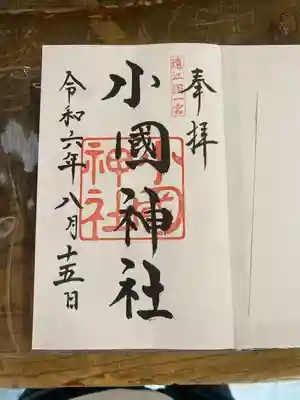 奉拝
遠江国一宮
小國神社
小國神社
令和六年八月十五日